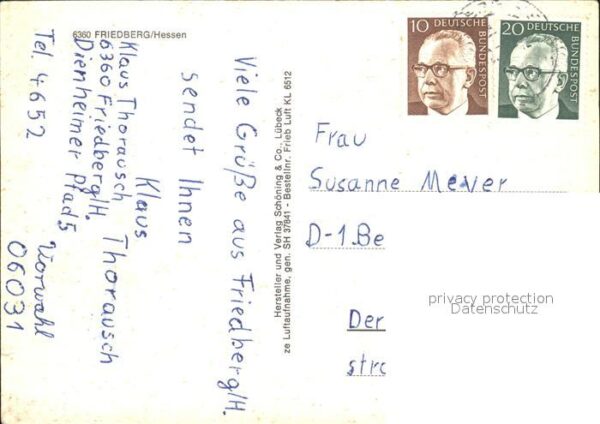 6360 FRIEDBERG/Hessen
Viele Grüße aus Friedberg/H.
sendet Ihnen
Klaus
Klaus Thorausch Thorausch
6360 Friedberg/H.
Dienheimer Pfad 5
Tel. 4652 Vorwahl
06031
Hersteller und Verlag Schöning & Co., Lübeck
ze Luftaufnahme, gen. SH 37841 - Bestellnr. Frieb Luft KL 6512
10 DEUTSCHE BUNDESPOST
20 DEUTSCHE BUNDESPOST
Frau
Susanne Meyer
D-1 Be
Der
strc
privacy protection
Datenschutz